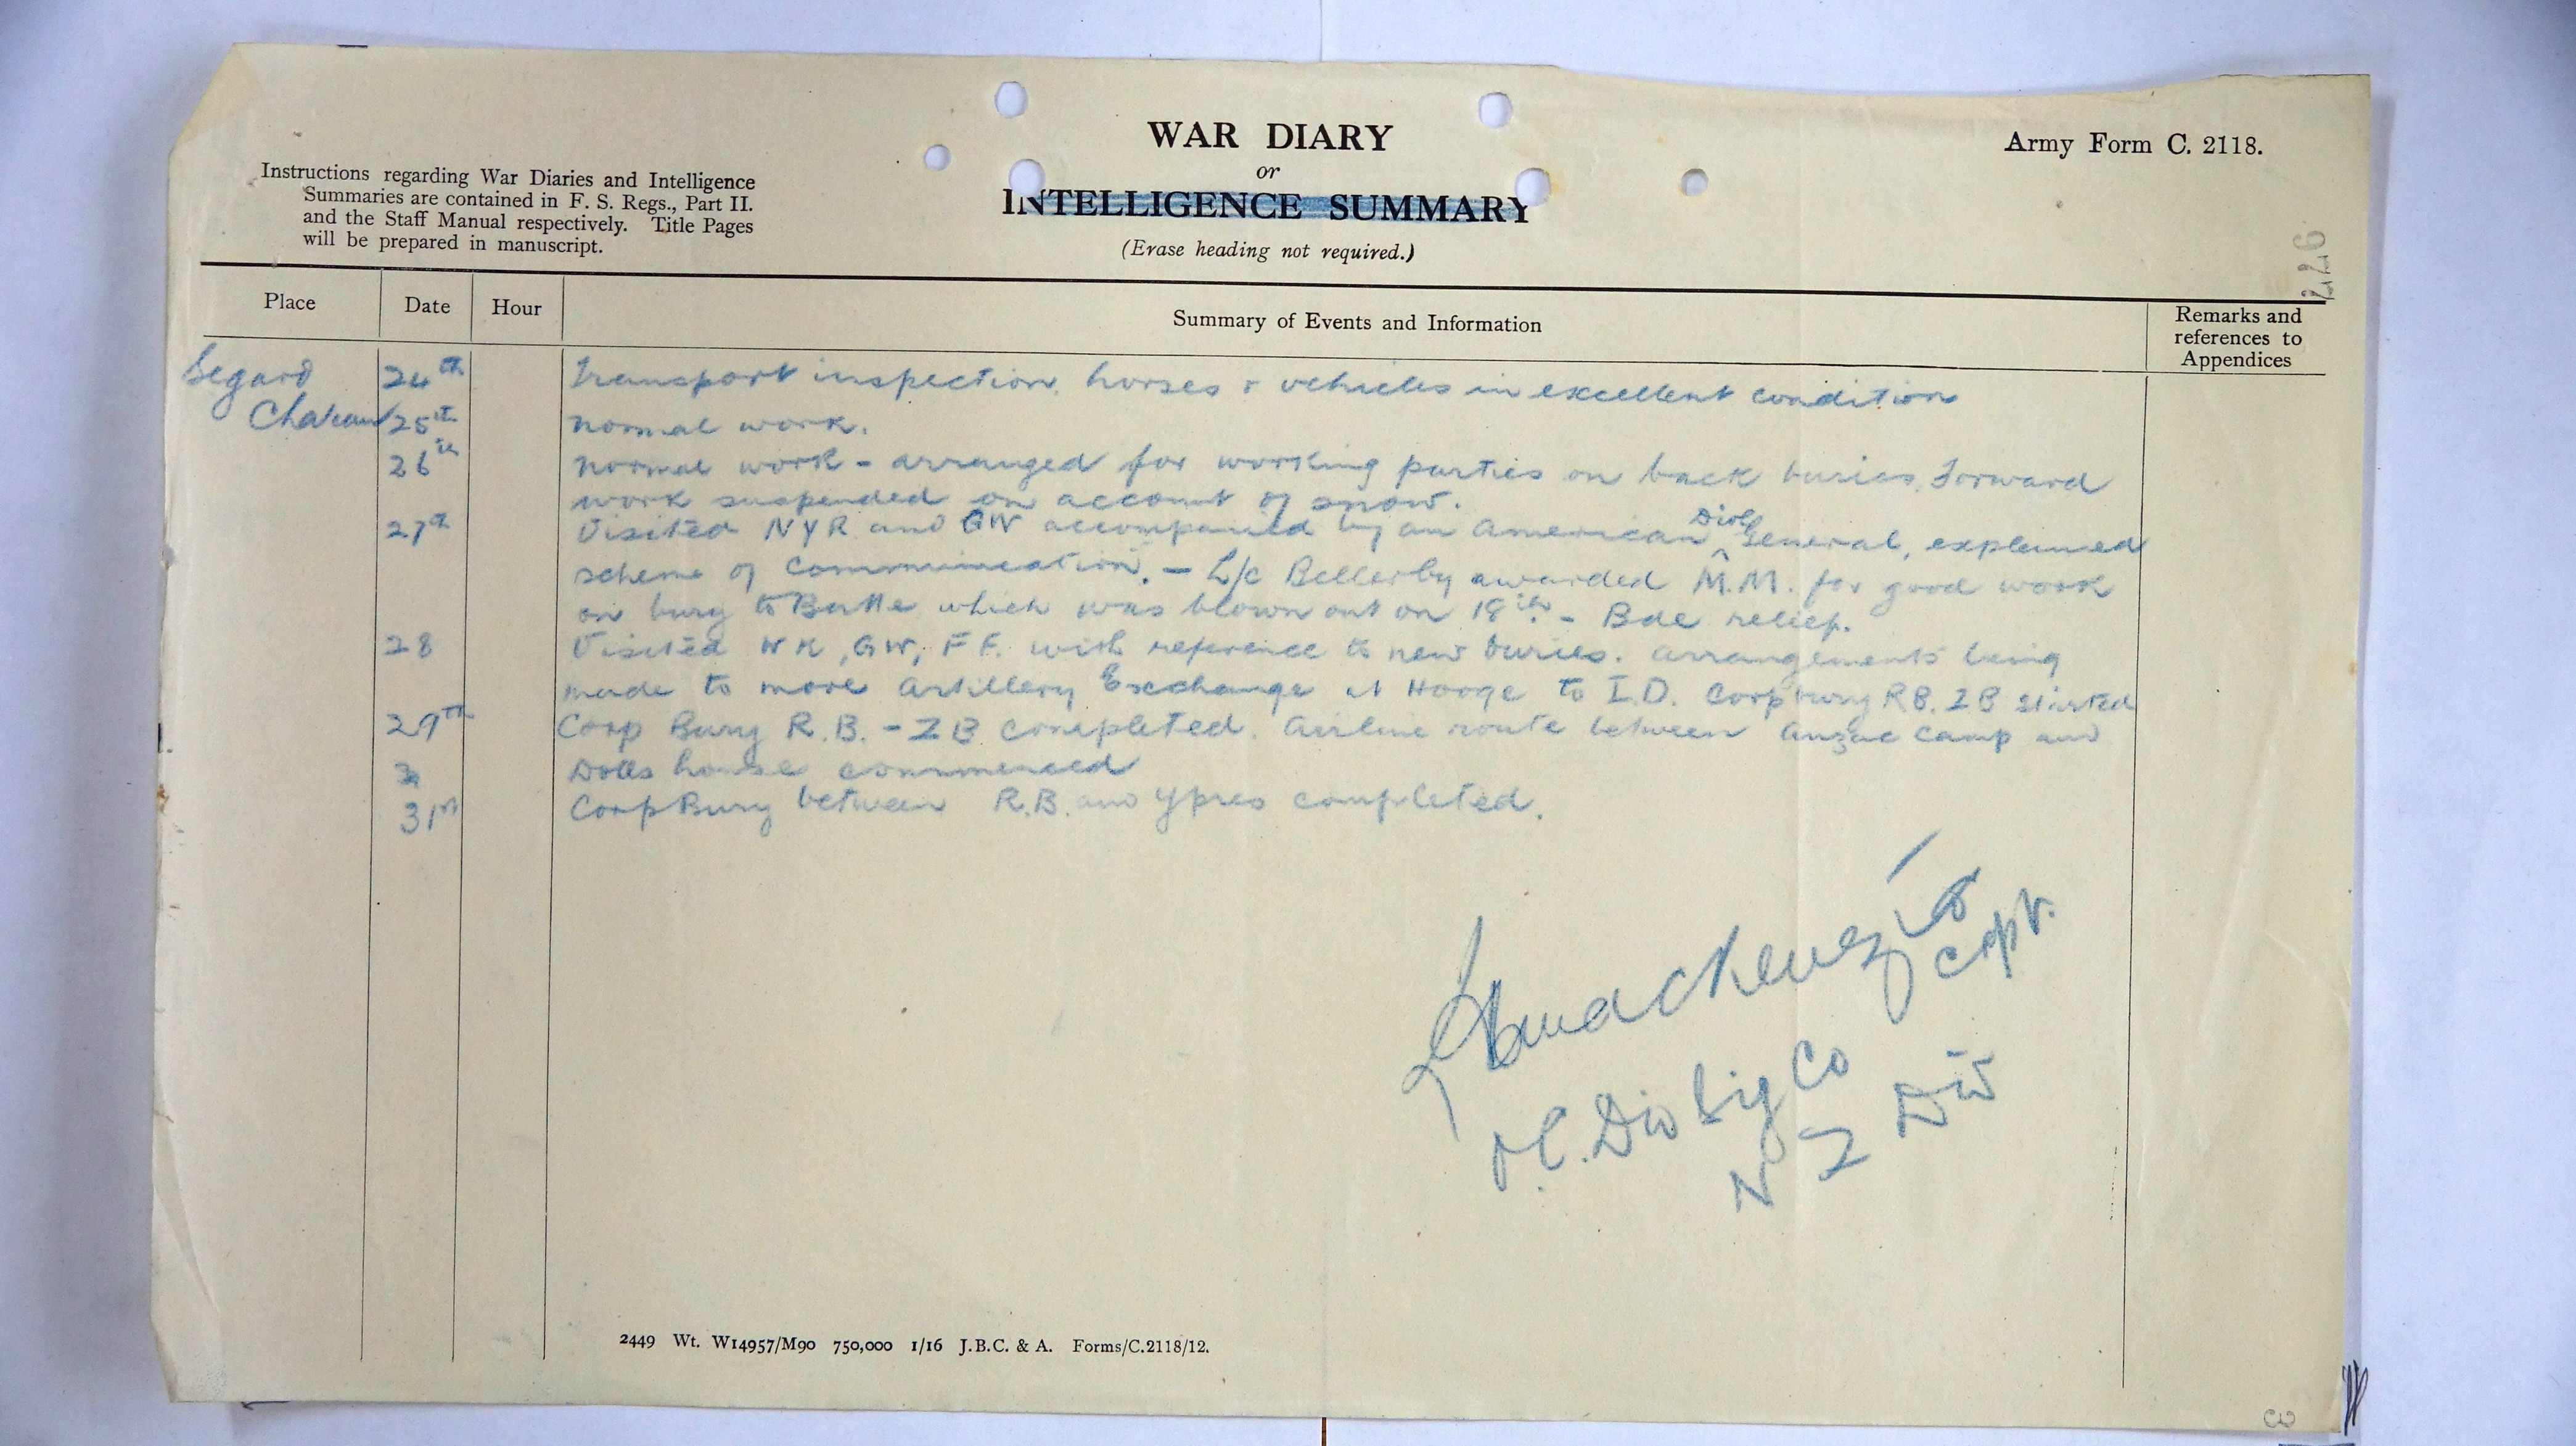 WAR DIARY
or
INTELLIGENCE SUMMARY
(Erase heading not required.)
Army Form C. 2118.
Instructions regarding War Diaries and Intelligence
Summaries are contained in F. S. Regs., Part II.
and the Staff Manual respectively. Title Pages
will be prepared in manuscript.
226
Place Date Hour Summary of Events and Information Remarks and references to Appendices
Segard 24th Transport inspection, horses & vehicles in excellent condition
Chateau 25th Normal work.
26th Normal work - arranged for working parties on back buries. Forward
work suspended on account of snow.
27th Visited NYR and GW accompanied by an American Divl General, explained
scheme of communication. - L/c Bellerby awarded M.M. for good work
on bury to Butte which was blown out on 18th. - Bde relief.
28 Visited WK, GW, FF. with reference to new buries. Arrangements being
made to move Artillery Exchange at Hooge to I.D. Corp bury RB. ZB started
29th Corp Bury R.B. - ZB completed. Airline route between Anzac Camp and
Dolls house commenced
31st Corp Bury between R.B. and Ypres completed.
Mackenzie
Capt.
OC. Div Sig Co
N Z Div
2449 Wt. W14957/M90 750,000 1/16 J.B.C. & A. Forms/C.2118/12.